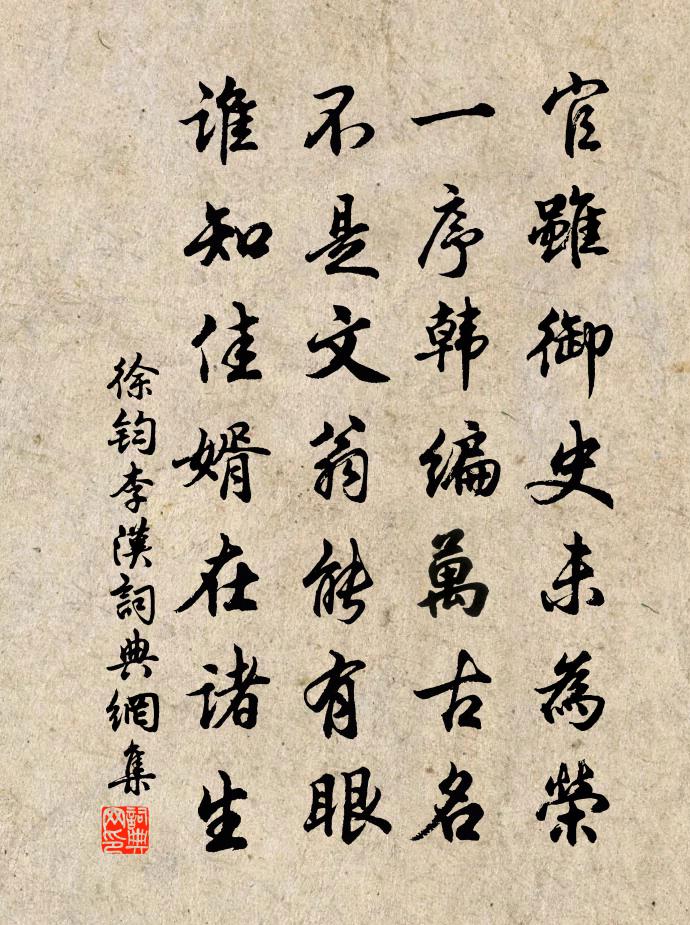 官雖御史未為榮
一序韩編萬古名
不是文翁能有眼
谁知佳婿在诸生
徐鈞李漢詞典網集
詞典网印